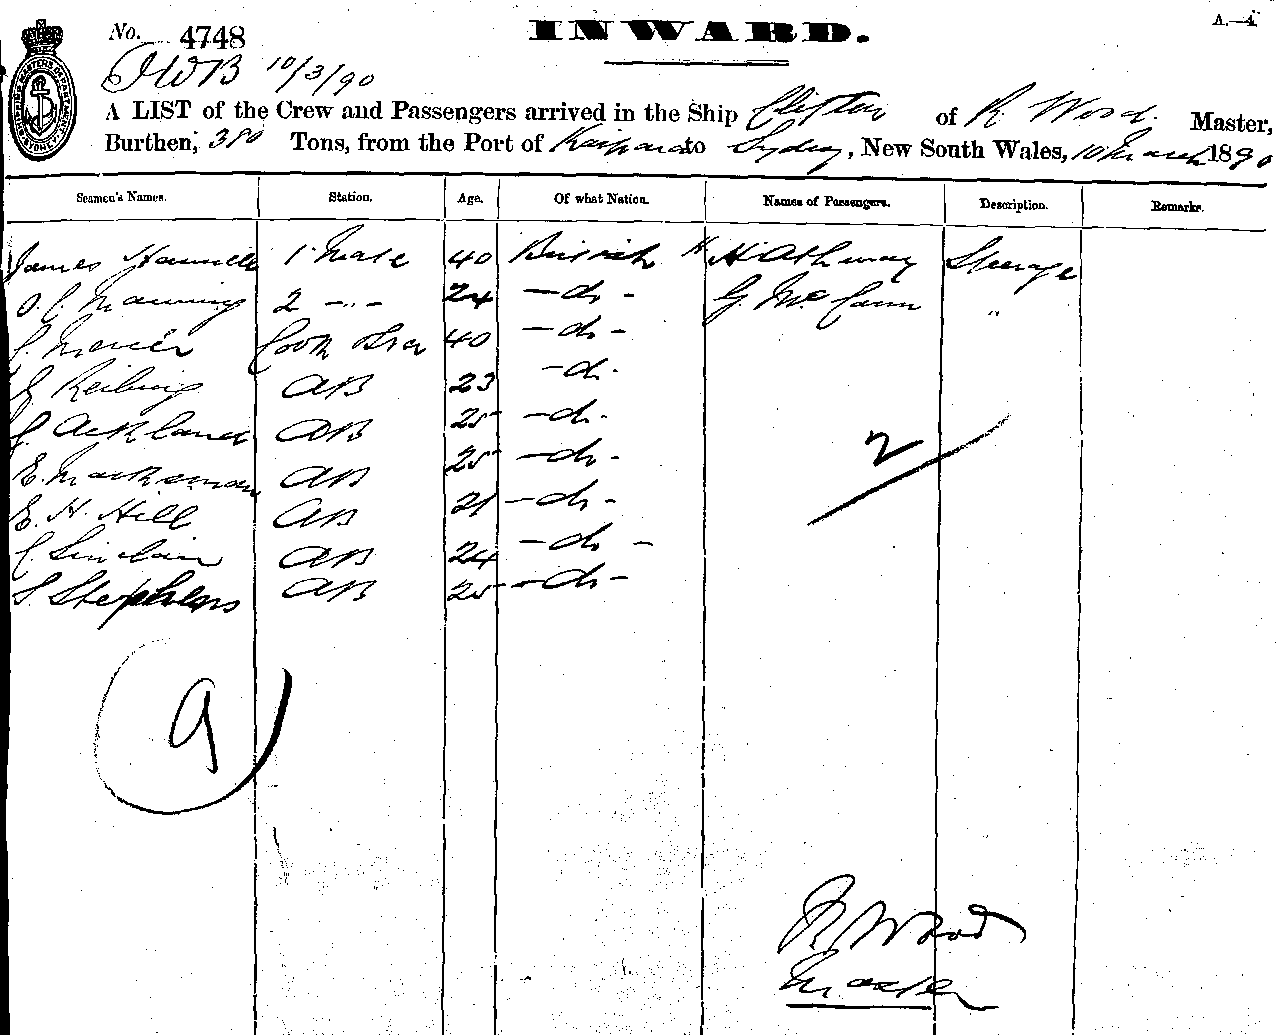 INWARD.
A.—4.
No. 4748
JWB 10/3/90
A LIST of the Crew and Passengers arrived in the Ship Clifton of R Wood Master,
Burthen, 380 Tons, from the Port of Kaipara to Sydney, New South Wales, 10 March 1890
Seamen's Names. Station. Age. Of what Nation. Names of Passengers. Description. Remarks.
James 1 Mate 40 British H Hathway Steerage
2 -"- 24 -do- G. McCann "
Cook 40 -do-
AB 23 -do-
Ackland AB 25 -do-
E. Marksman AB 25 -do-
E. H. Hill AB 21 -do-
C. Sinclair AB 24 -do-
S. Stephens AB 25 -do-
2
9
R Wood
Master